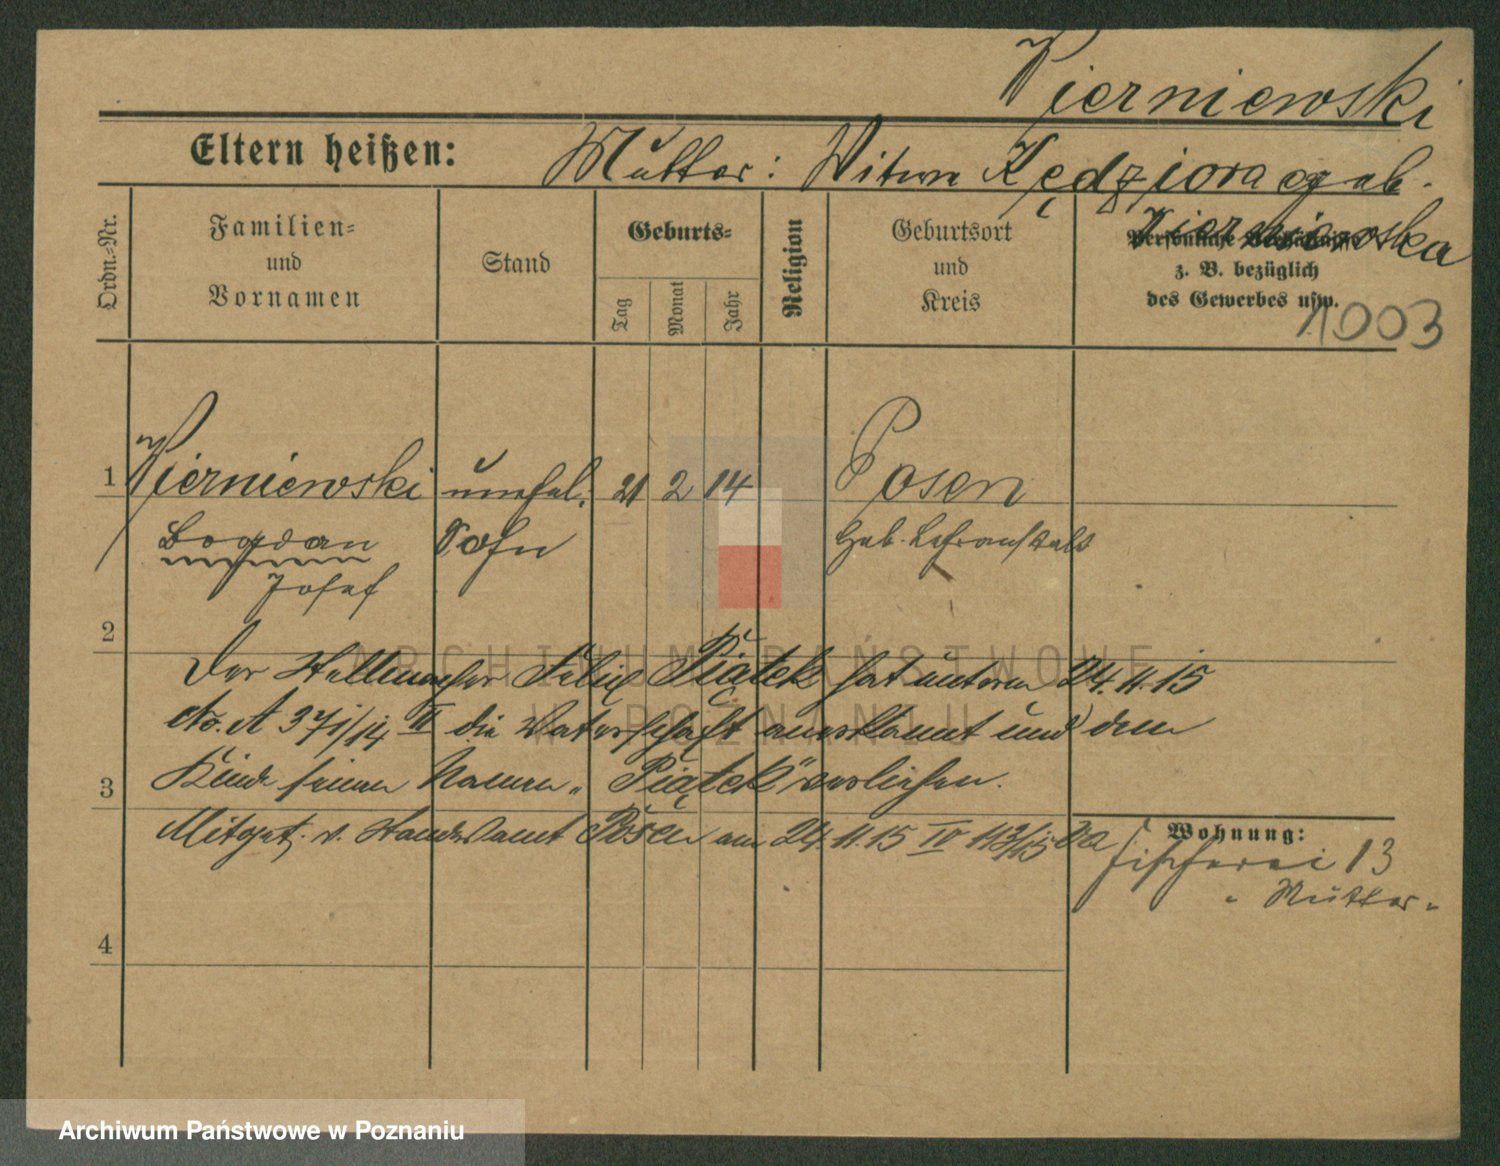 Wierniewski
Eltern heißen: Mutter: Witwe Kędziora geb.
Wierniewska
Ordn.-Nr.
Familien-
und
Vornamen
Stand
Geburts-
Tag
Monat
Jahr
Religion
Geburtsort
und
Kreis
Persönliche Verhältnisse
z. B. bezüglich
des Gewerbes usw.
1003
1 Wierniewski unehel. 21 2 14 Posen
Bogdan Sohn Heb. Lehranstalt
Josef
2
Der Stellmacher Felix Piątek hat unterm 24.11.15
No. A 371/14 II die Vaterschaft anerkannt und dem
3 Kinde seinen Namen „Piątek" verliehen.
Mitget. v. Standesamt Posen am 24.11.15 IV
4
Wohnung:
Fischerei 13
„ Mutter „
ARCHIWUM PAŃSTWOWE
W POZNANIU
Archiwum Państwowe w Poznaniu